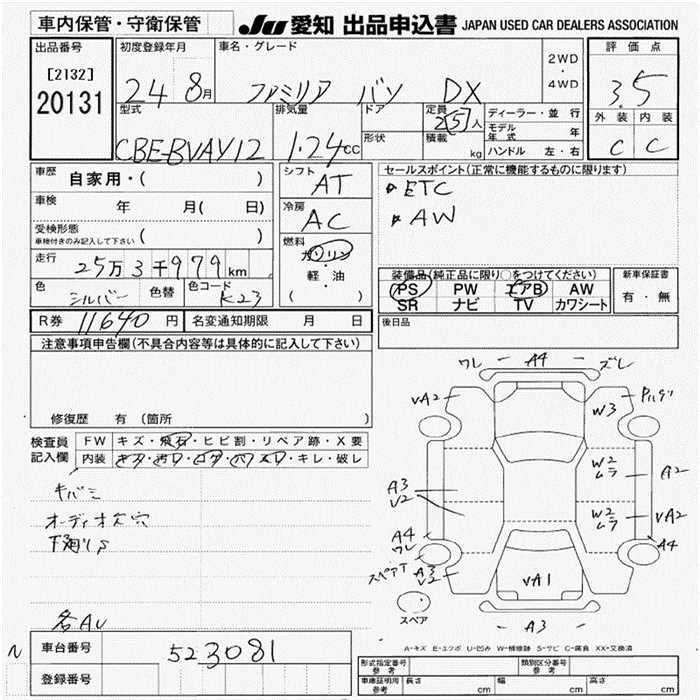 車内保管・守衛保管
JU 愛知 出品申込書 JAPAN USED CAR DEALERS ASSOCIATION
出品番号
[2132]
20131
初度登録年月
24 8月
車名・グレード
ファミリア バン DX
2WD
・
4WD
評価点
3.5
外装 内装
C C
型式
CBE-BVAY12
排気量
1.24cc
ドア
形状
定員
2(5)人
積載
kg
ディーラー・並行
モデル年式 年
ハンドル 左・右
車歴
自家用・( )
車検
年 月( 日)
受検形態
車検付きのみ記入して下さい ( )
走行
25万3千979km
色
シルバー
色替
色コード
K23
シフト
AT
冷房
AC
燃料
ガソリン
・
軽・油
( )
セールスポイント(正常に機能するものに限ります)
ETC
AW
装備品(純正品に限り○をつけてください)
PS PW エアB AW
SR ナビ TV カワシート
新車保証書
有・無
R券 11640円 名変通知期限 月 日
後日品
注意事項申告欄(不具合内容等は具体的に記入して下さい)
修復歴 有 (箇所 )
検査員
記入欄
FW キズ・飛石・ヒビ割・リペア跡・X要
内装 キズ・汚レ・コゲ・穴・スレ・キレ・破レ
キバミ
オーディオ欠穴
下廻りS
各AU
ワレ A4 ズレ
VA2
W3
W2
ムラ
A2
A3
V2
W2
ムラ
VA2
A4
ワレ
A4
スペアT
A3
V2
VA1
スペア
A3
A-キズ E-エクボ U-凹み W-補修跡 S-サビ C-腐食 XX-交換済
N
車台番号
523081
登録番号
形式指定番号
参考
類別区分番号
参考
車庫証明用
参考
長さ cm 幅 cm 高さ cm